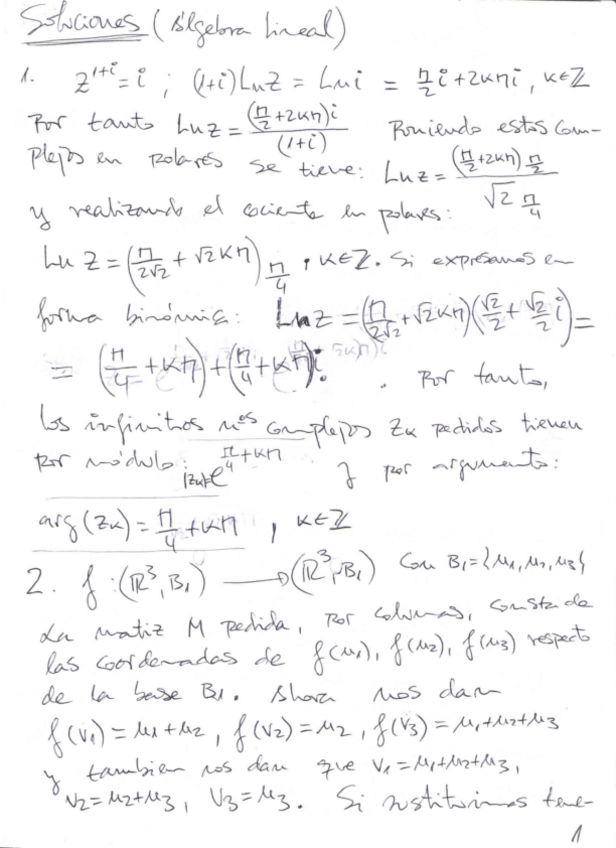 Soluciones (Álgebra Lineal)
1. z^{1+i} = i ; (1+i) Ln z = Ln i = π/2 i + 2kπi, k∈ℤ
Por tanto Ln z = (π/2 + 2kπ)i / (1+i) Poniendo estos com-
plejos en polares se tiene: Ln z = (π/2 + 2kπ)_{π/2} / √2_{π/4}
y realizando el cociente en polares:
Ln z = (π/(2√2) + √2 kπ)_{π/4}, k∈ℤ. Si expresamos en
forma binómica: Ln z = (π/(2√2) + √2 kπ)(√2/2 + √2/2 i) =
= (π/4 + kπ) + (π/4 + kπ)i. Por tanto,
los infinitos nos complejos z_k pedidos tienen
por módulo: |z_k| = e^{π/4 + kπ} y por argumento:
arg(z_k) = π/4 + kπ, k∈ℤ
2. f: (ℝ³, B₁) → (ℝ³, B₁) Con B₁ = {u₁, u₂, u₃}
La matriz M pedida, por columnas, consta de
las coordenadas de f(u₁), f(u₂), f(u₃) respecto
de la base B₁. Ahora nos dan
f(v₁) = u₁ + u₂, f(v₂) = u₂, f(v₃) = u₁ + u₂ + u₃
y tambien nos dan que v₁ = u₁ + u₂ + u₃,
v₂ = u₂ + u₃, v₃ = u₃. Si sustituimos tene-
1